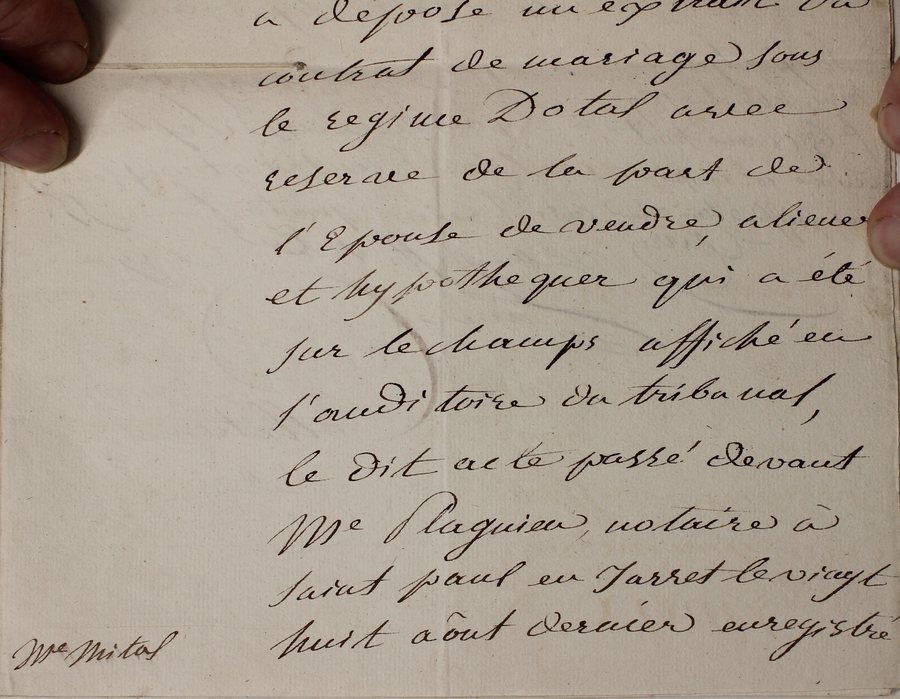 a deposé un extrait du
contrat de mariage sous
le regime Dotal avec
reserve de la part de
l'Epouse de vendre, aliener
et hypothequer qui a été
sur le champs affiché en
l'auditoire du tribunal,
le dit acte passé devant
Me Plagnieu, notaire à
saint paul en Jarret le vingt
huit aôut dernier enregistré
Me Mital